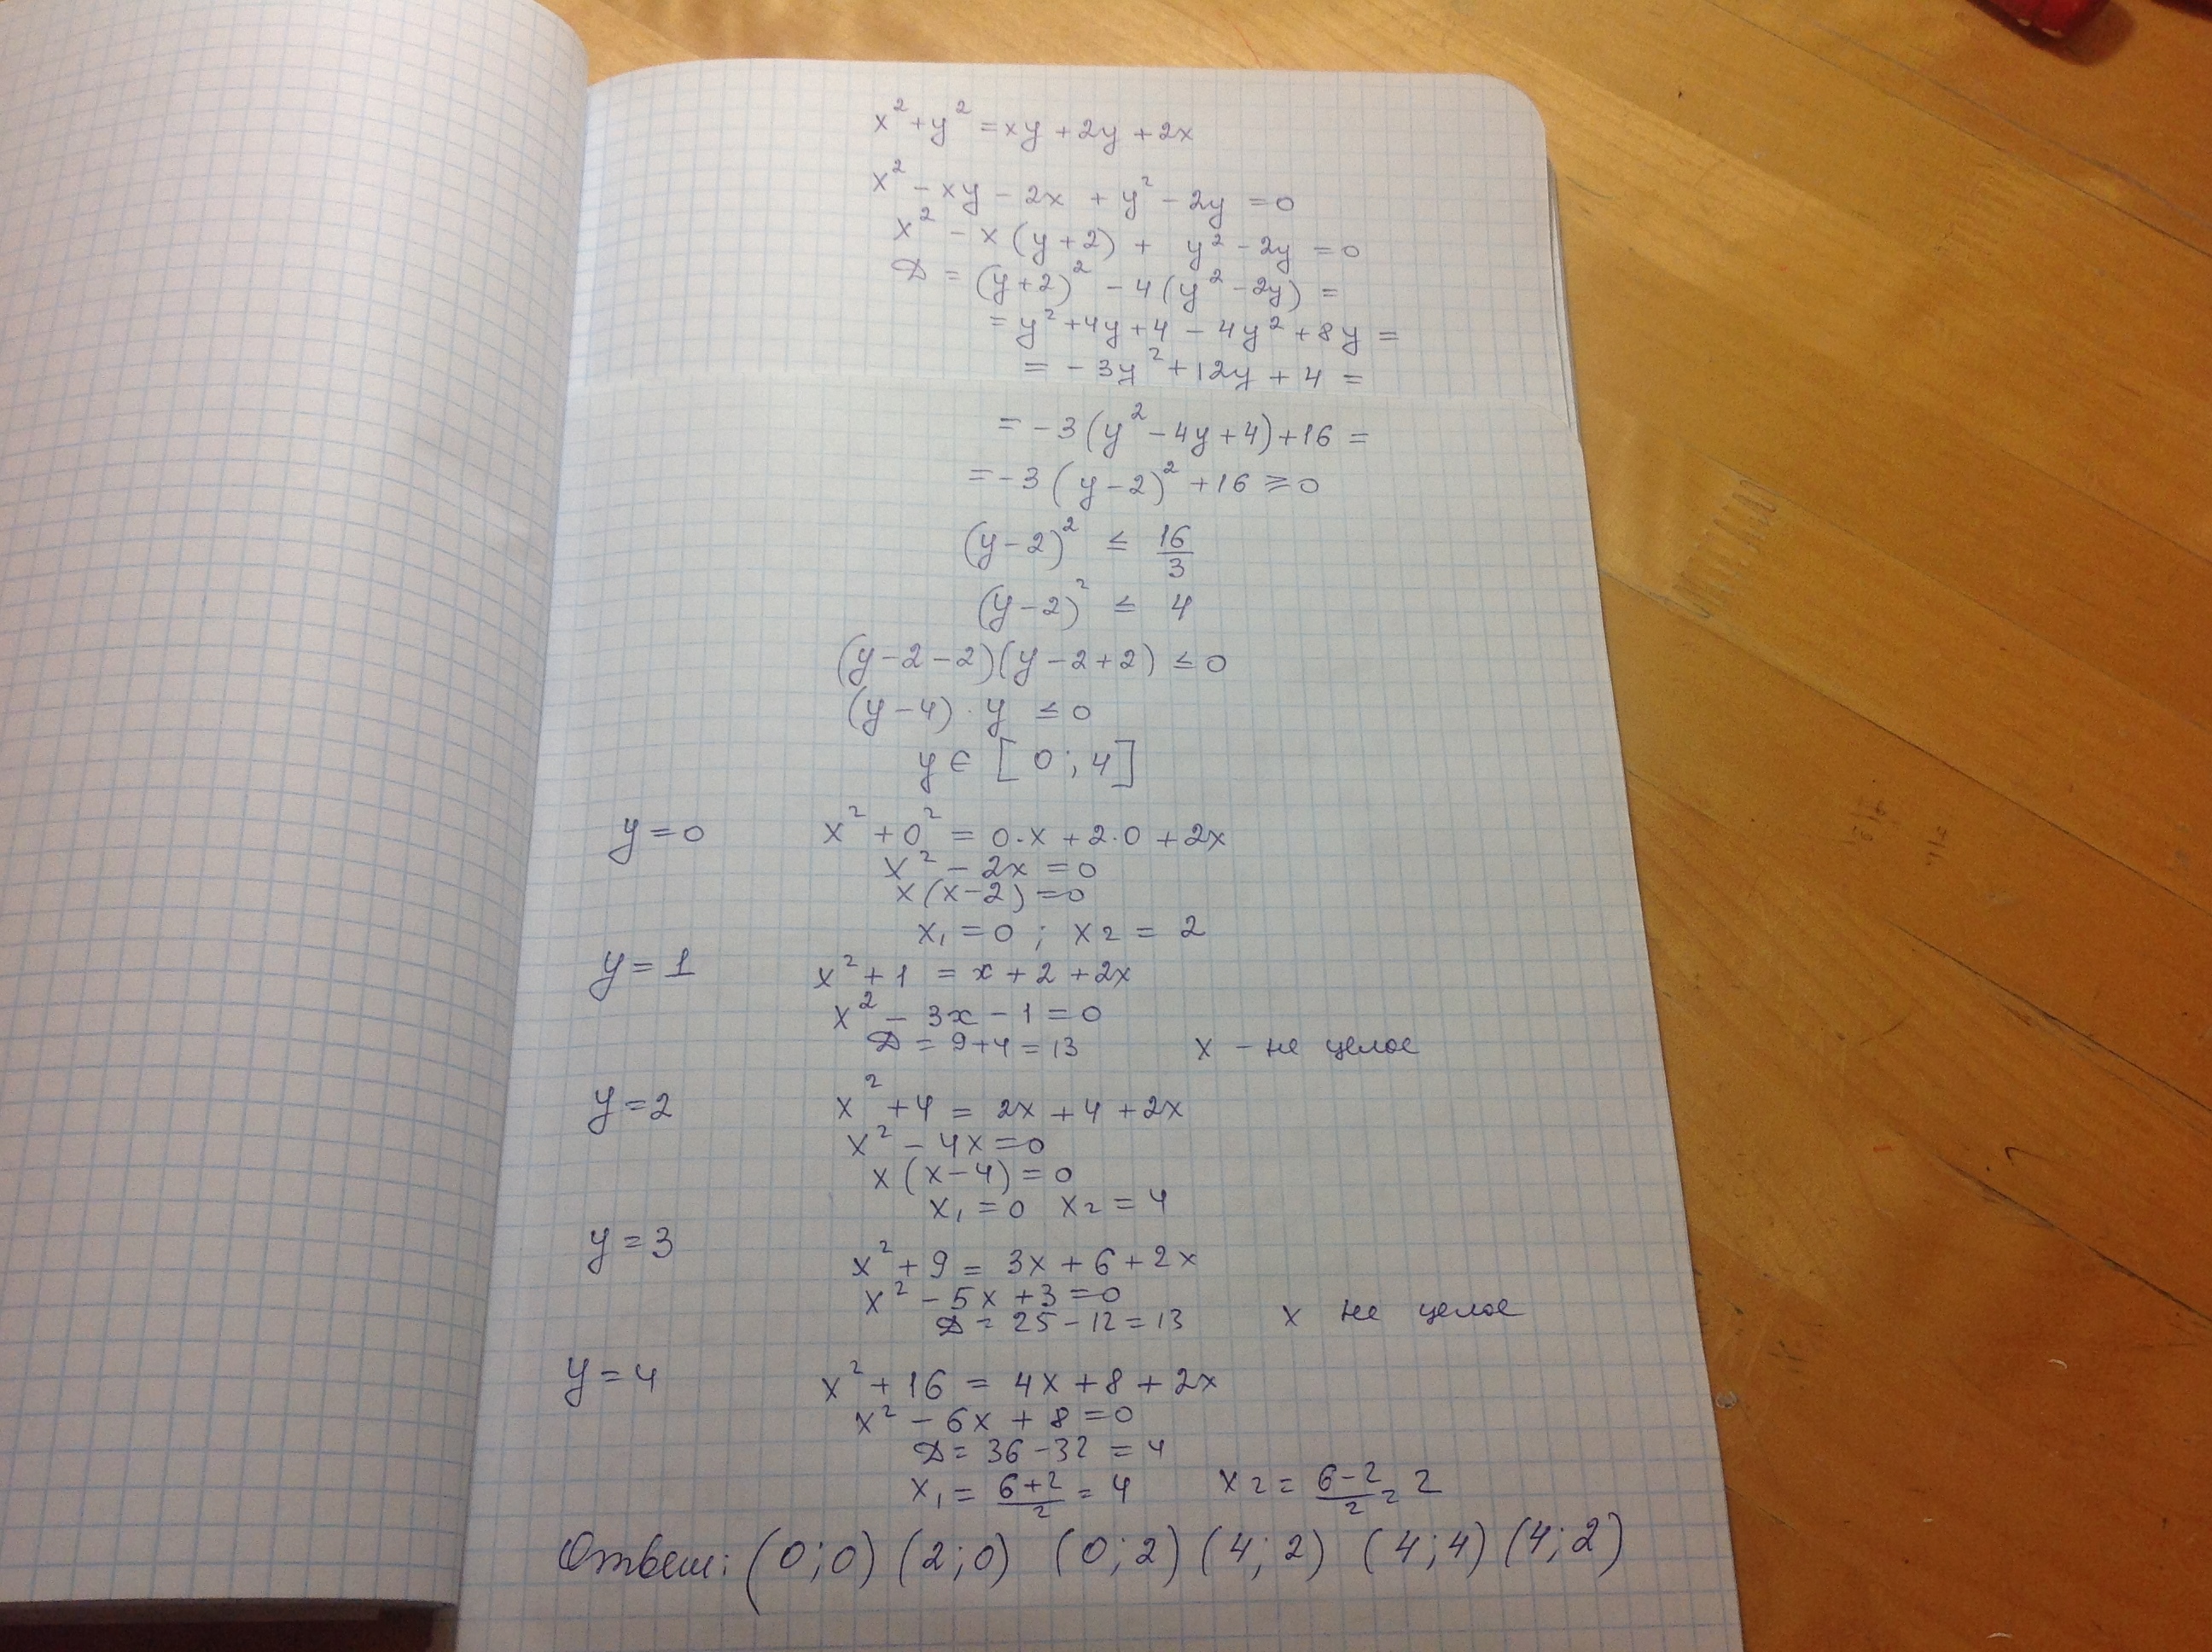 x² + y² = xy + 2y + 2x
x² - xy - 2x + y² - 2y = 0
x² - x(y+2) + y² - 2y = 0
D = (y+2)² - 4(y² - 2y) =
= y² + 4y + 4 - 4y² + 8y =
= -3y² + 12y + 4 =
= -3(y² - 4y + 4) + 16 =
= -3(y-2)² + 16 ≥ 0
(y-2)² ≤ 16/3
(y-2)² ≤ 4
(y-2-2)(y-2+2) ≤ 0
(y-4)·y ≤ 0
y ∈ [0; 4]
y = 0 x² + 0² = 0·x + 2·0 + 2x
x² - 2x = 0
x(x-2) = 0
x₁ = 0 ; x₂ = 2
y = 1 x² + 1 = x + 2 + 2x
x² - 3x - 1 = 0
D = 9+4 = 13 x - не целое
y = 2 x² + 4 = 2x + 4 + 2x
x² - 4x = 0
x(x-4) = 0
x₁ = 0 x₂ = 4
y = 3 x² + 9 = 3x + 6 + 2x
x² - 5x + 3 = 0
D = 25 - 12 = 13 x не целое
y = 4 x² + 16 = 4x + 8 + 2x
x² - 6x + 8 = 0
D = 36 - 32 = 4
x₁ = (6+2)/2 = 4 x₂ = (6-2)/2 = 2
Ответ: (0;0) (2;0) (0;2) (4;2) (4;4) (4;2)